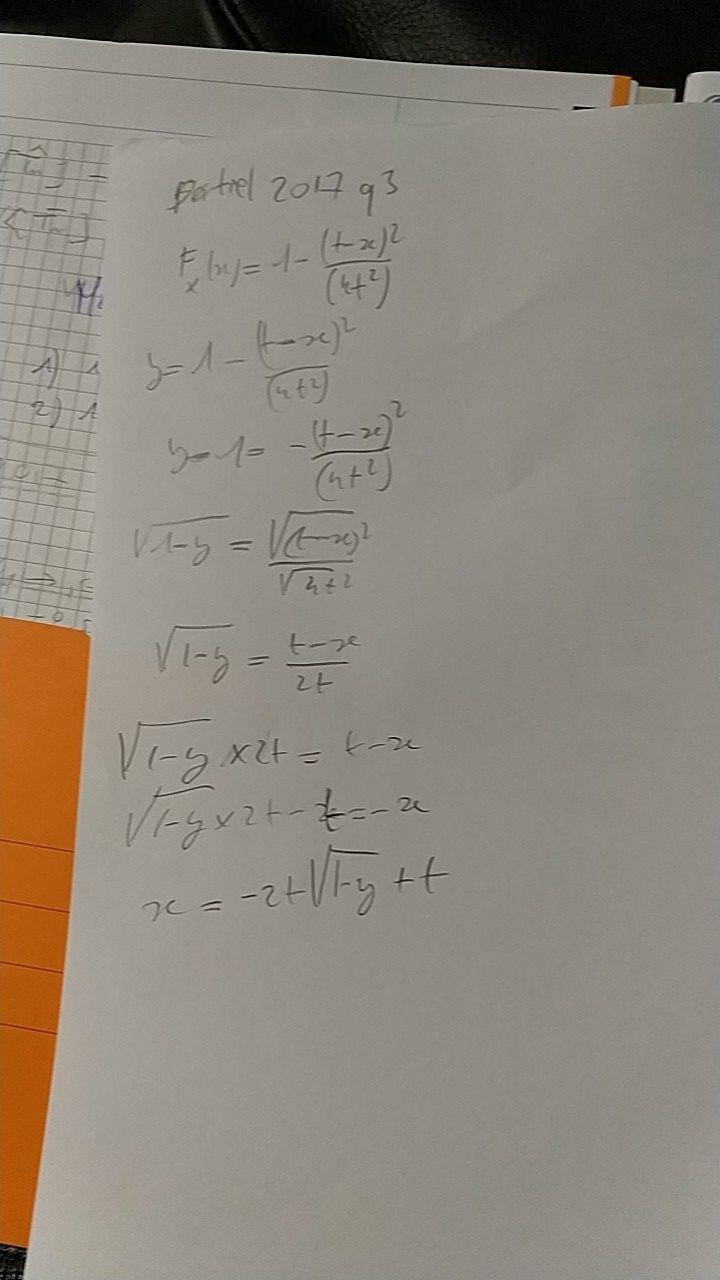 Partiel 2017 q3
F_x(x) = 1 - (t-x)²/(4t²)
y = 1 - (t-x)²/(4t²)
y-1 = -(t-x)²/(4t²)
√1-y = √(t-x)²/√4t²
√1-y = t-x/2t
√1-y × 2t = t-x
√1-y × 2t - t = -x
x = -2t√1-y + t
1) 1
2) 1